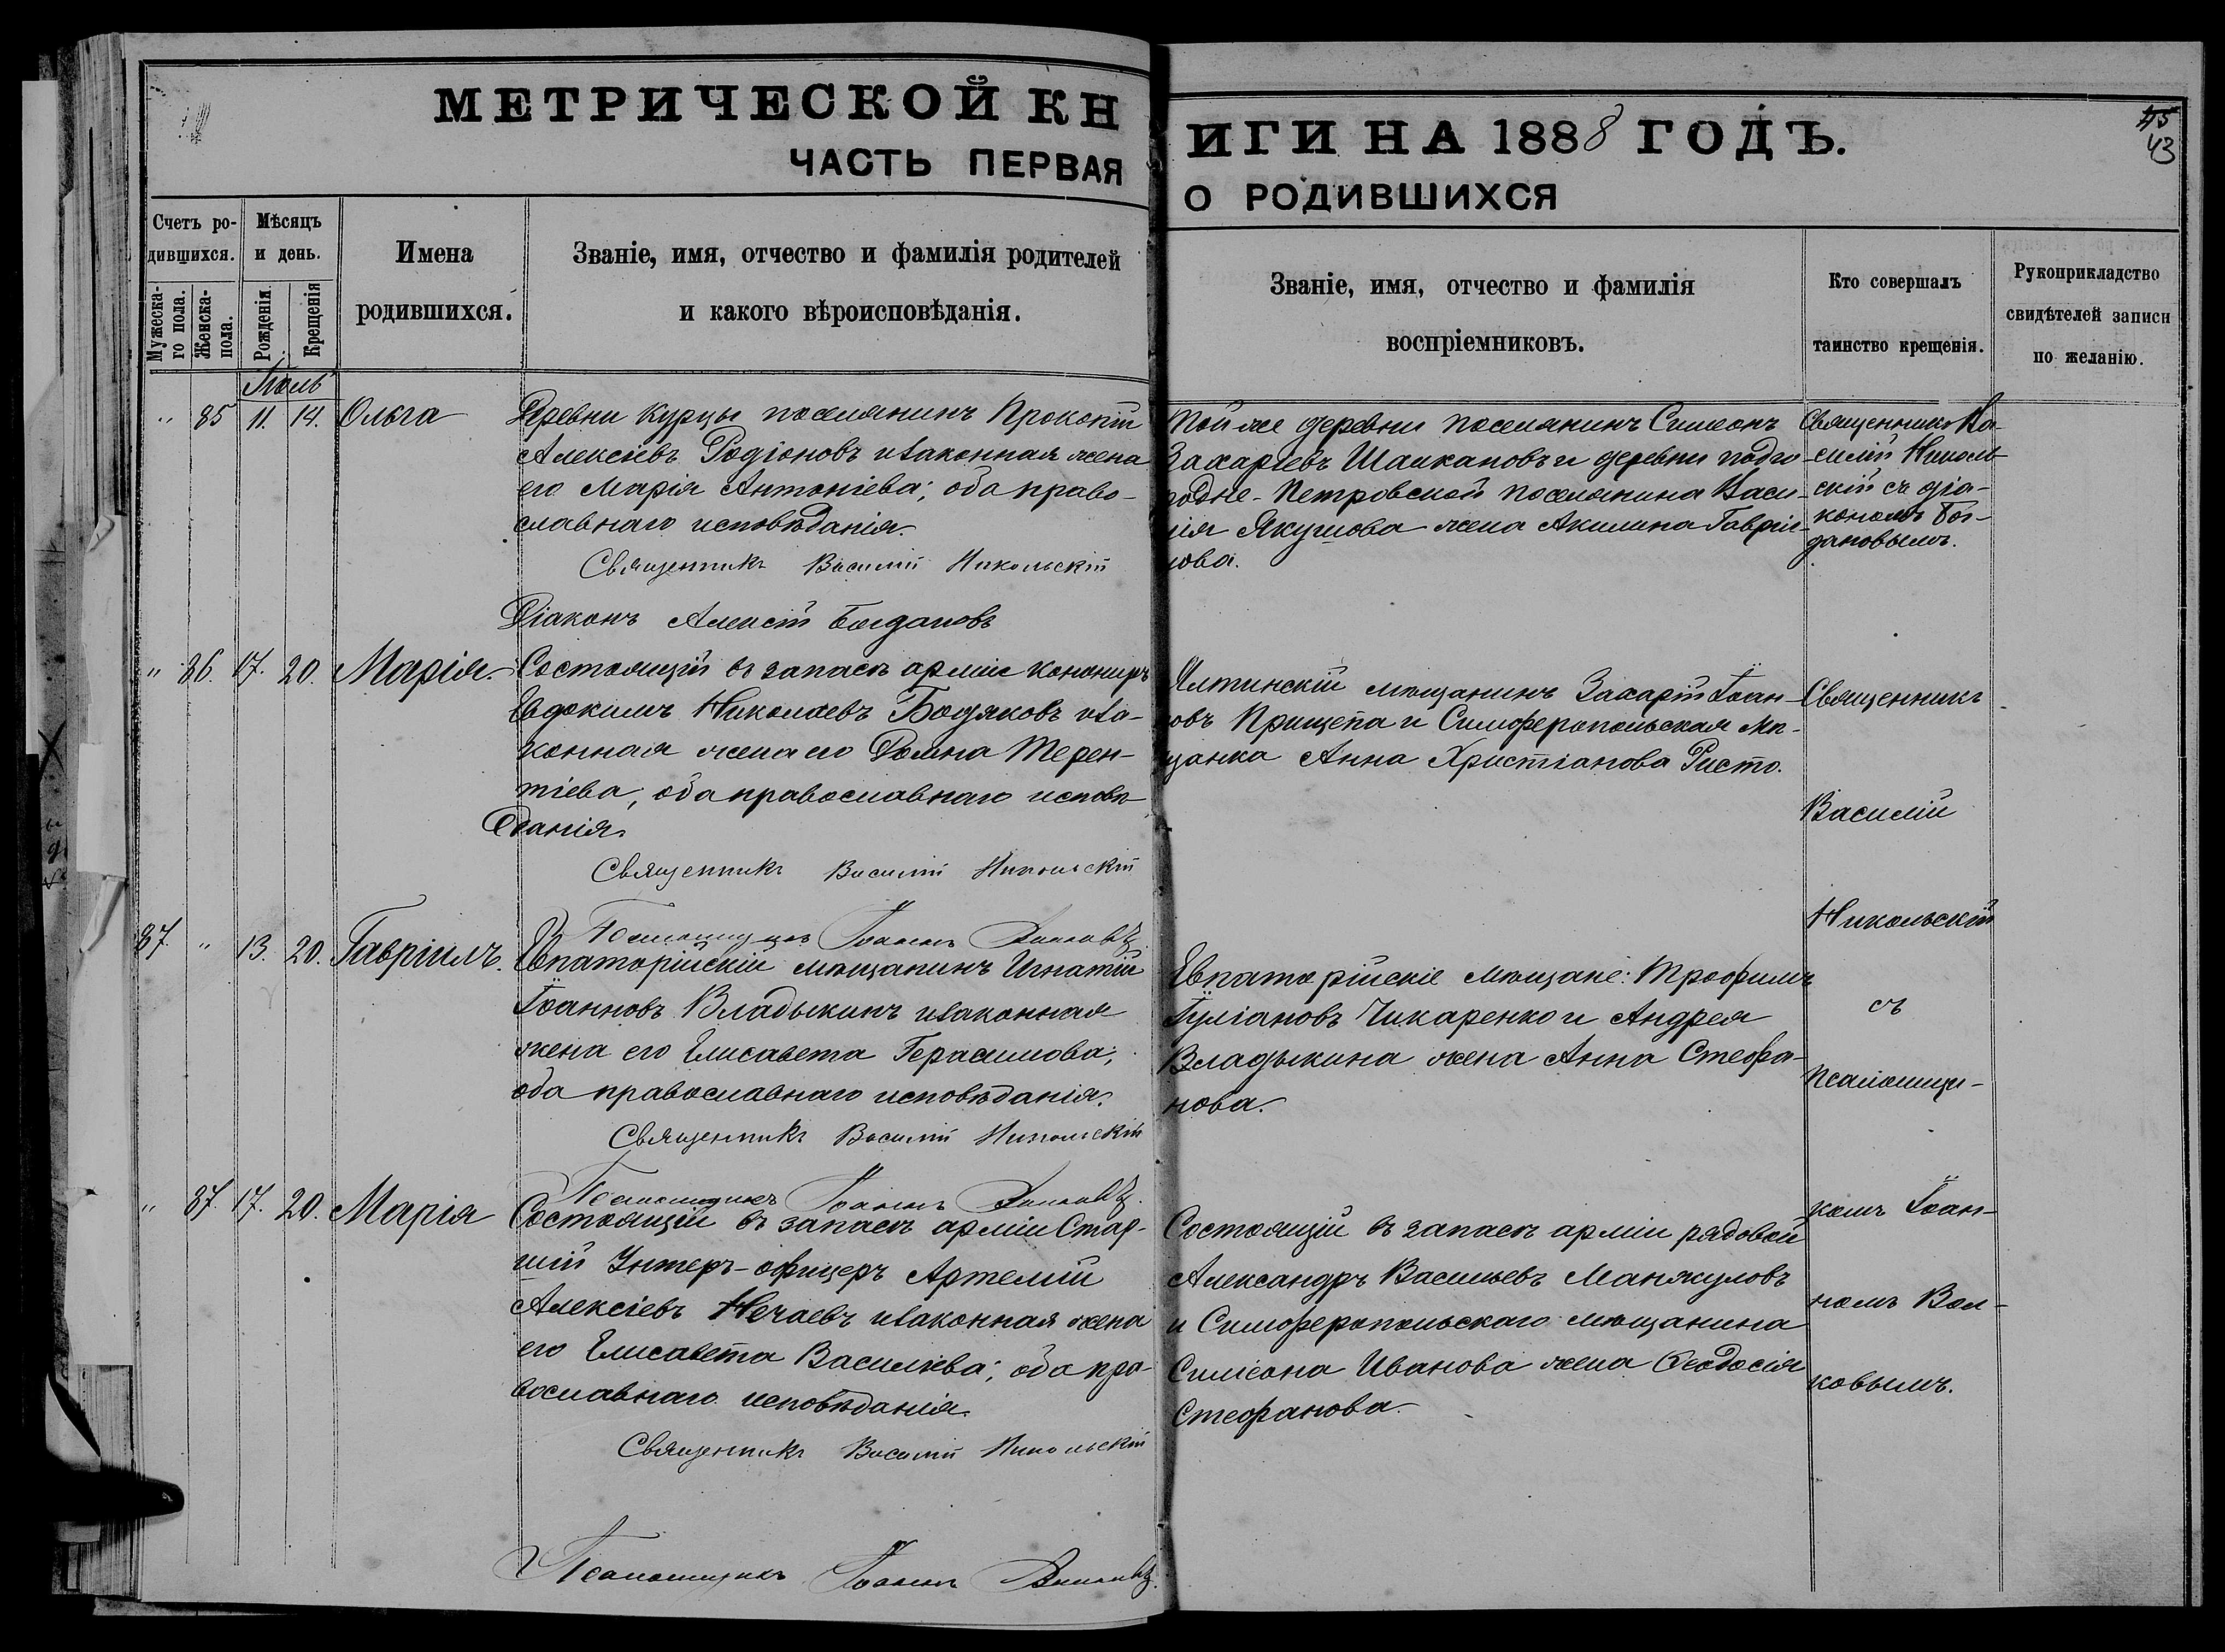 МЕТРИЧЕСКОЙ КНИГИ НА 1888 ГОДЪ.
ЧАСТЬ ПЕРВАЯ О РОДИВШИХСЯ
45
43
Счетъ ро-
дившихся.
Мужеска-
го пола.
Женска-
пола.
Мѣсяцъ
и день.
Рожденія.
Крещенія
Имена
родившихся.
Званіе, имя, отчество и фамилія родителей
и какого вѣроисповѣданія.
Званіе, имя, отчество и фамилія
воспріемниковъ.
Кто совершалъ
таинство крещенія.
Рукоприкладство
свидѣтелей записи
по желанію.
Іюль
" 85 11. 14. Ольга
Деревни Курцы поселянинъ Прокопій
Алексіевъ Родіоновъ и законная жена
его Марія Антоніева; оба право-
славнаго исповѣданія.
Священникъ Василій Никольскій
Діаконъ Алексій Богдановъ
Той же деревни поселянинъ Симеонъ
Захаріевъ Шаикановъ и деревни подго
родне-Петровской поселянина Васи-
лія Якушова жена Акилина Гаврiи-
лова.
Священникъ Ва-
силій Николь-
скій съ діа-
кономъ Бог-
дановымъ.
" 86. 17. 20. Марія.
Состоящій въ запасѣ арміи канониръ
Евдокимъ Николаевъ Бодяковъ и за-
конная жена его Домна Терен-
тіева, оба православнаго исповѣ
данія.
Священникъ Василій Никольскій
Псаломщикъ Іоаннъ Волковъ
Ялтинскій мѣщанинъ Захарій Іоан-
новъ Прищепа и Симферопольская мѣ-
щанка Анна Христіанова Ристо.
87. " 13. 20. Гавріилъ.
Евпаторійскій мѣщанинъ Игнатій
Іоанновъ Владыкинъ и законная
жена его Елисавета Герасимова;
оба православнаго исповѣданія.
Священникъ Василій Никольскій
Псаломщикъ Іоаннъ Волковъ.
Евпаторійскіе мѣщане: Трофимъ
Іуліановъ Чикаренко и Андрея
Владыкина жена Анна Стефа-
нова.
" 87. 17. 20. Марія
Состоящій въ запасѣ арміи Стар-
шій Унтеръ-офицеръ Артемій
Алексіевъ Нечаевъ и законная жена
его Елисавета Василіева; оба пра-
вославнаго исповѣданія.
Священникъ Василій Никольскій
Псаломщикъ Іоаннъ Волковъ.
Состоящій въ запасѣ арміи рядовой
Александръ Васильевъ Манжуловъ
и Симферопольскаго мѣщанина
Симеона Иванова жена Ѳеодосія
Стефанова.
Священникъ
Василій
Никольскій
съ
псаломщи-
комъ Іоан-
номъ Вол-
ковымъ.